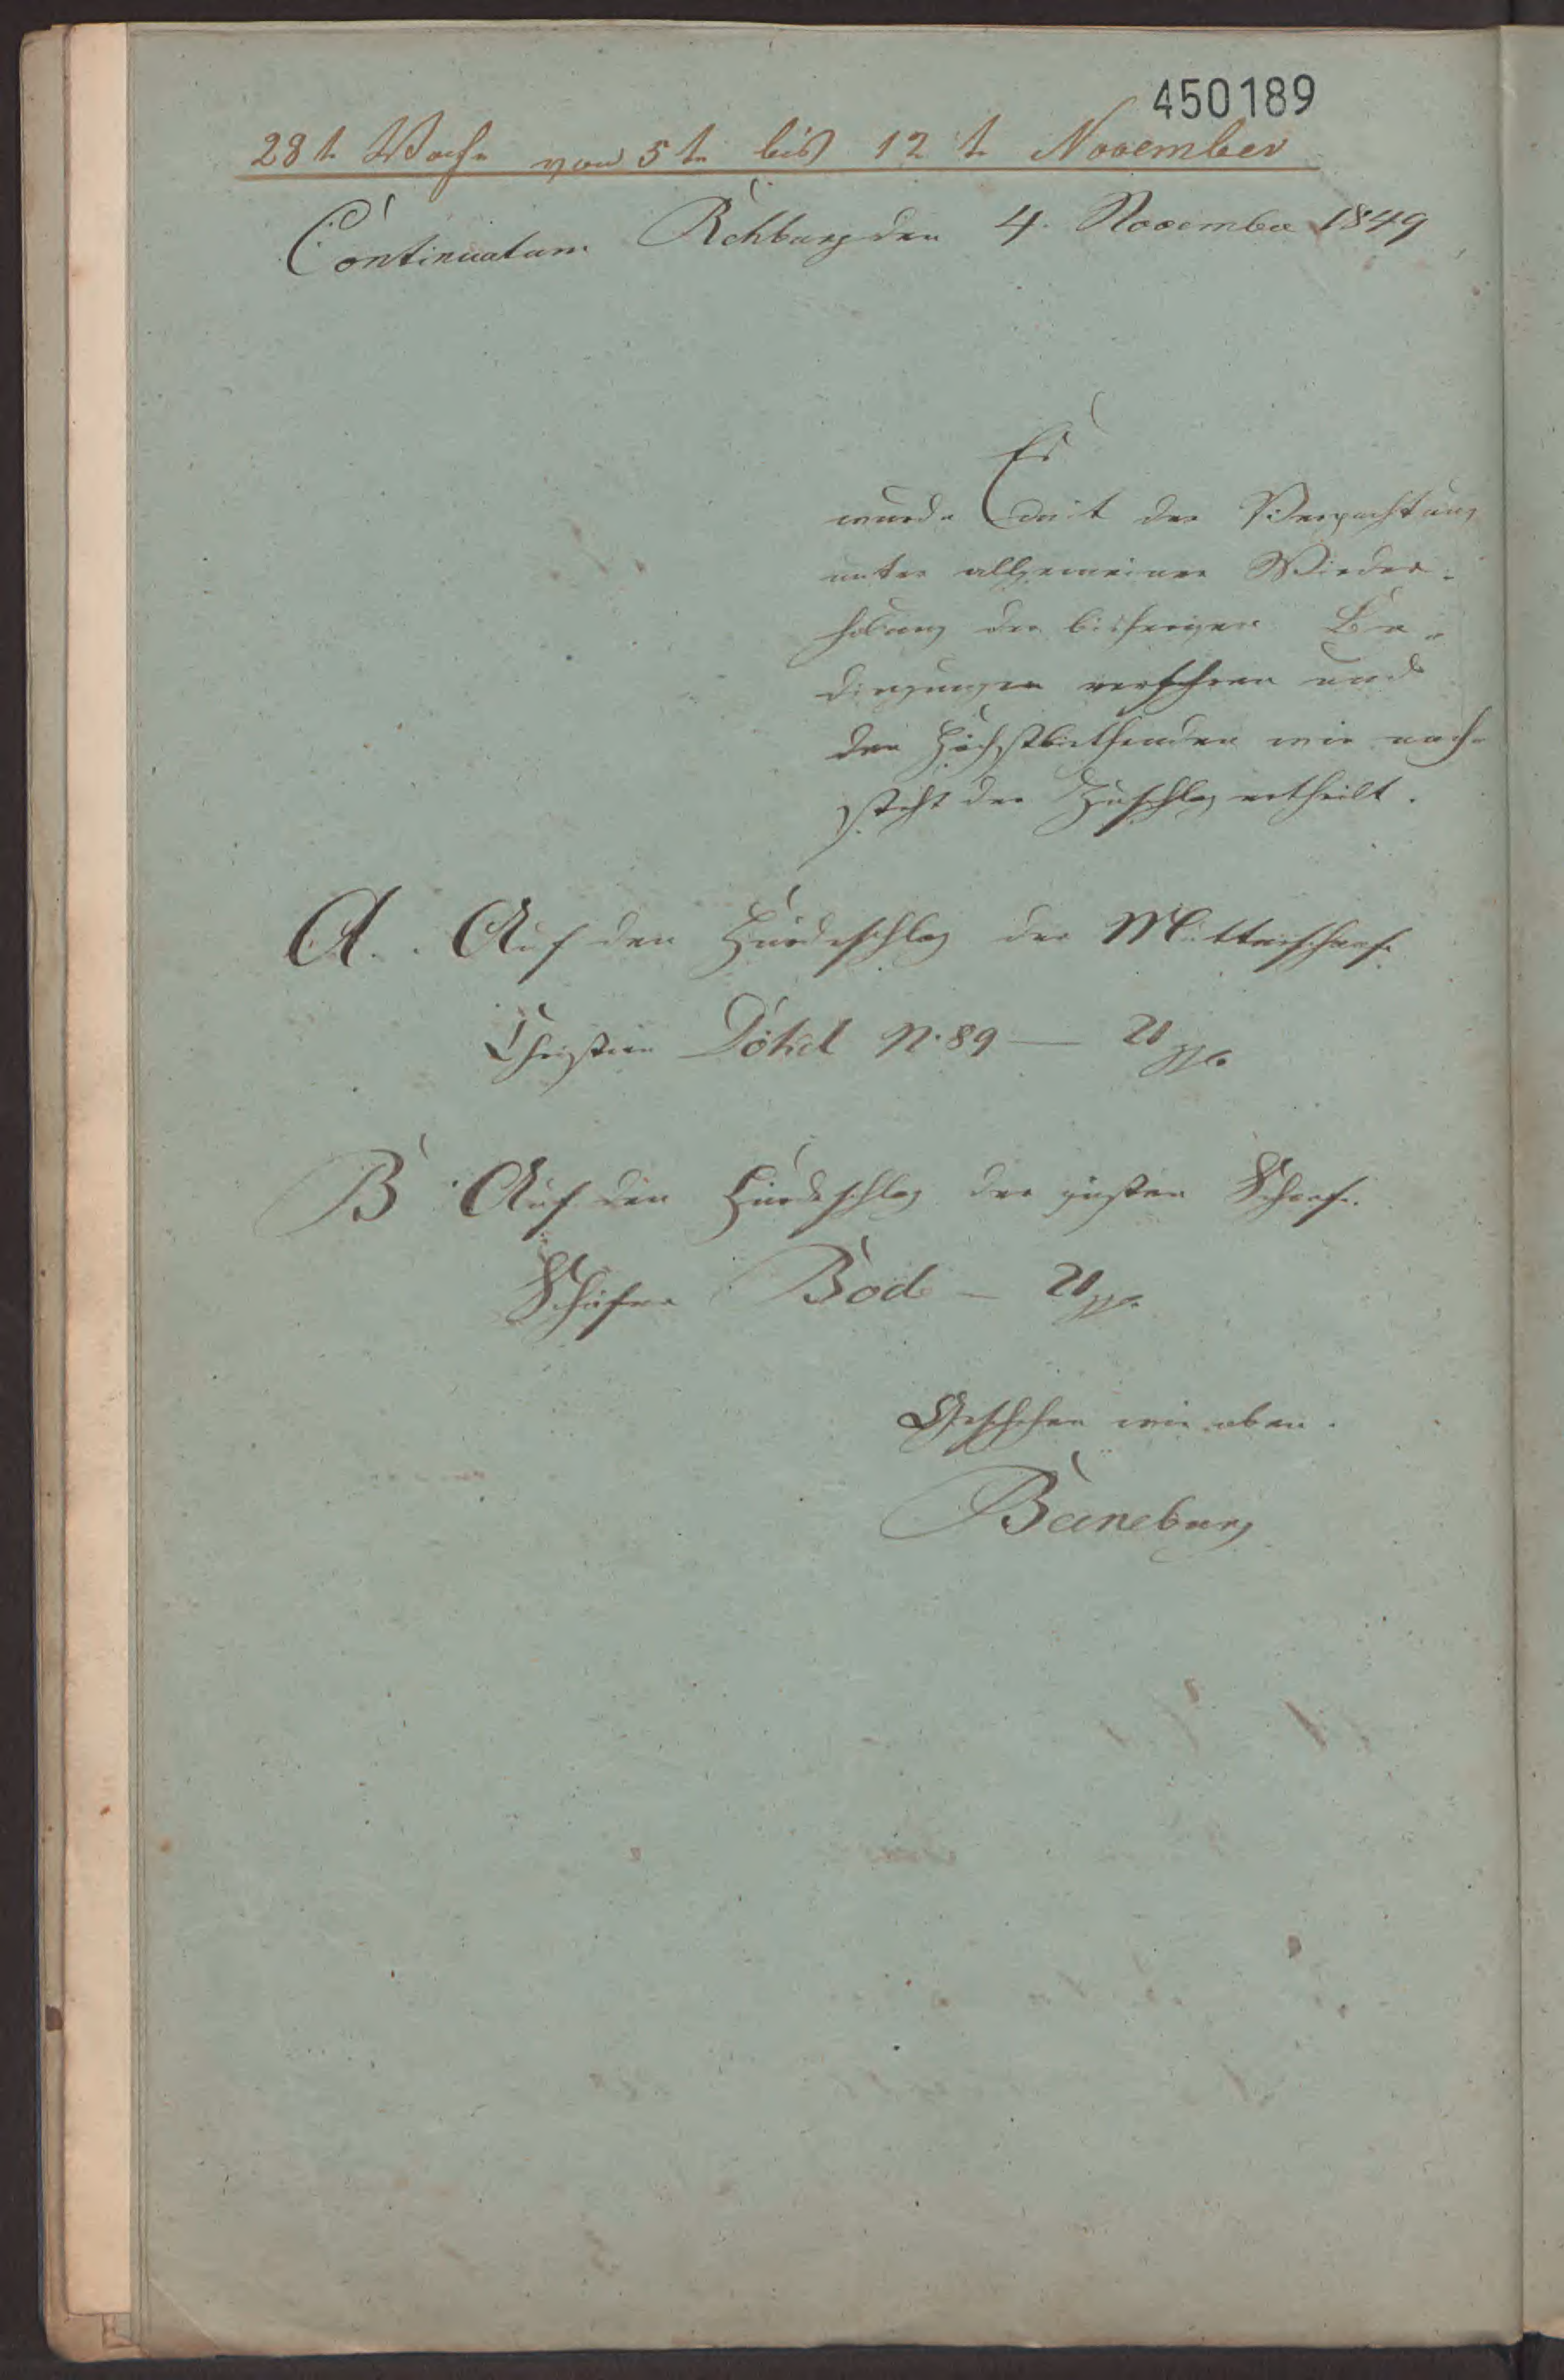 450189
28te Woche von 5te bis 12te November
Continuatum Rehburg den 4. November 1849
Es
wurde mit der Verpachtung
unter allgemeiner Wieder-
holung der bisherigen Be-
dingungen verfahren und
den Höchstbiethenden wie nach-
steht der Zuschlag ertheilt.
A. Auf den Hürdeschlag der Mutterschafe
Christian Dökel N. 89 — 21 ggr.
B Auf den Hürdeschlag der güsten Schafe.
Schäfer Bode — 21 ggr.
Geschehen wie oben.